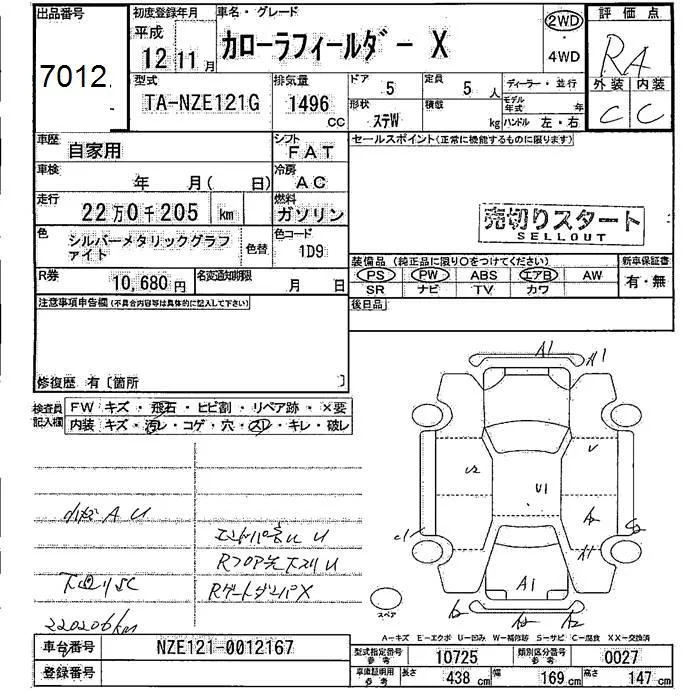 出品番号
7012
初度登録年月
平成
12年11月
車名・グレード
カローラフィールダー X
2WD
・
4WD
評価点
RA
外装 内装
C C
型式
TA-NZE121G
排気量
1496
cc
ドア 5
定員 5人
ディーラー・並行
形状 ステW
積載 kg
モデル年式 年
ハンドル 左・右
車歴
自家用
シフト
FAT
車検
年 月( 日)
冷房
AC
走行
22万0千205 km
燃料
ガソリン
色
シルバーメタリックグラファイト
色替
色コード
1D9
R券
10,680円
名変通知期限
月 日
セールスポイント(正常に機能するものに限ります)
売切りスタート
SELLOUT
装備品(純正品に限り○をつけてください)
新車保証書
PS PW ABS エアB AW
有・無
SR ナビ TV カワ
後日品
注意事項申告欄(不具合内容等は具体的に記入して下さい)
修復歴 有〔箇所 〕
検査員
記入欄
FW キズ・飛石・ヒビ割・リペア跡・×要
内装 キズ・汚レ・コゲ・穴・スレ・キレ・破レ
小キズ A U
下廻りSC
220206km
A1 A1
U2 U1 U
A1
スペア
A-キズ E-エクボ U-凹み W-補修跡 S-サビ C-腐食 XX-交換済
車台番号
NZE121-0012167
登録番号
型式指定番号
参考
10725
類別区分番号
参考
0027
車庫証明用
参考
長さ 438 cm 幅 169 cm 高さ 147 cm